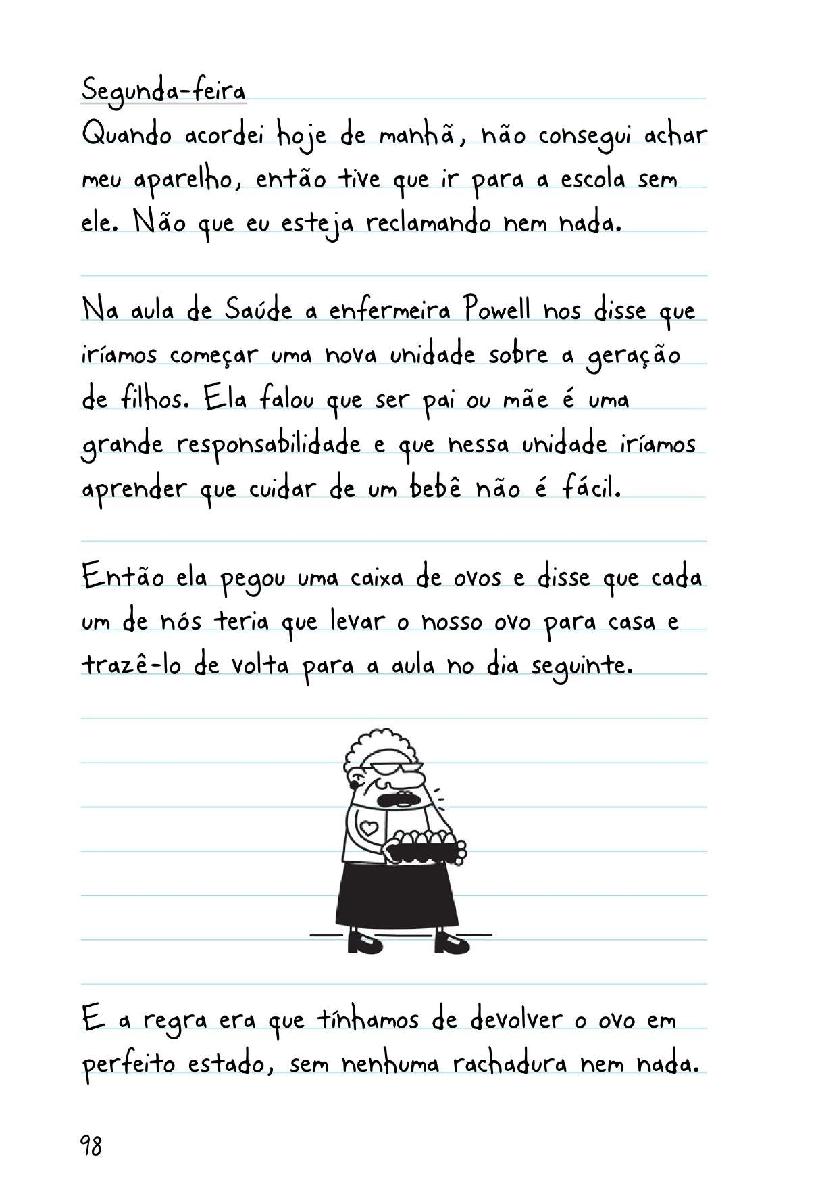 Segunda-feira
Quando acordei hoje de manhã, não consegui achar
meu aparelho, então tive que ir para a escola sem
ele. Não que eu esteja reclamando nem nada.
Na aula de Saúde a enfermeira Powell nos disse que
iríamos começar uma nova unidade sobre a geração
de filhos. Ela falou que ser pai ou mãe é uma
grande responsabilidade e que nessa unidade iríamos
aprender que cuidar de um bebê não é fácil.
Então ela pegou uma caixa de ovos e disse que cada
um de nós teria que levar o nosso ovo para casa e
trazê-lo de volta para a aula no dia seguinte.
E a regra era que tínhamos de devolver o ovo em
perfeito estado, sem nenhuma rachadura nem nada.
98